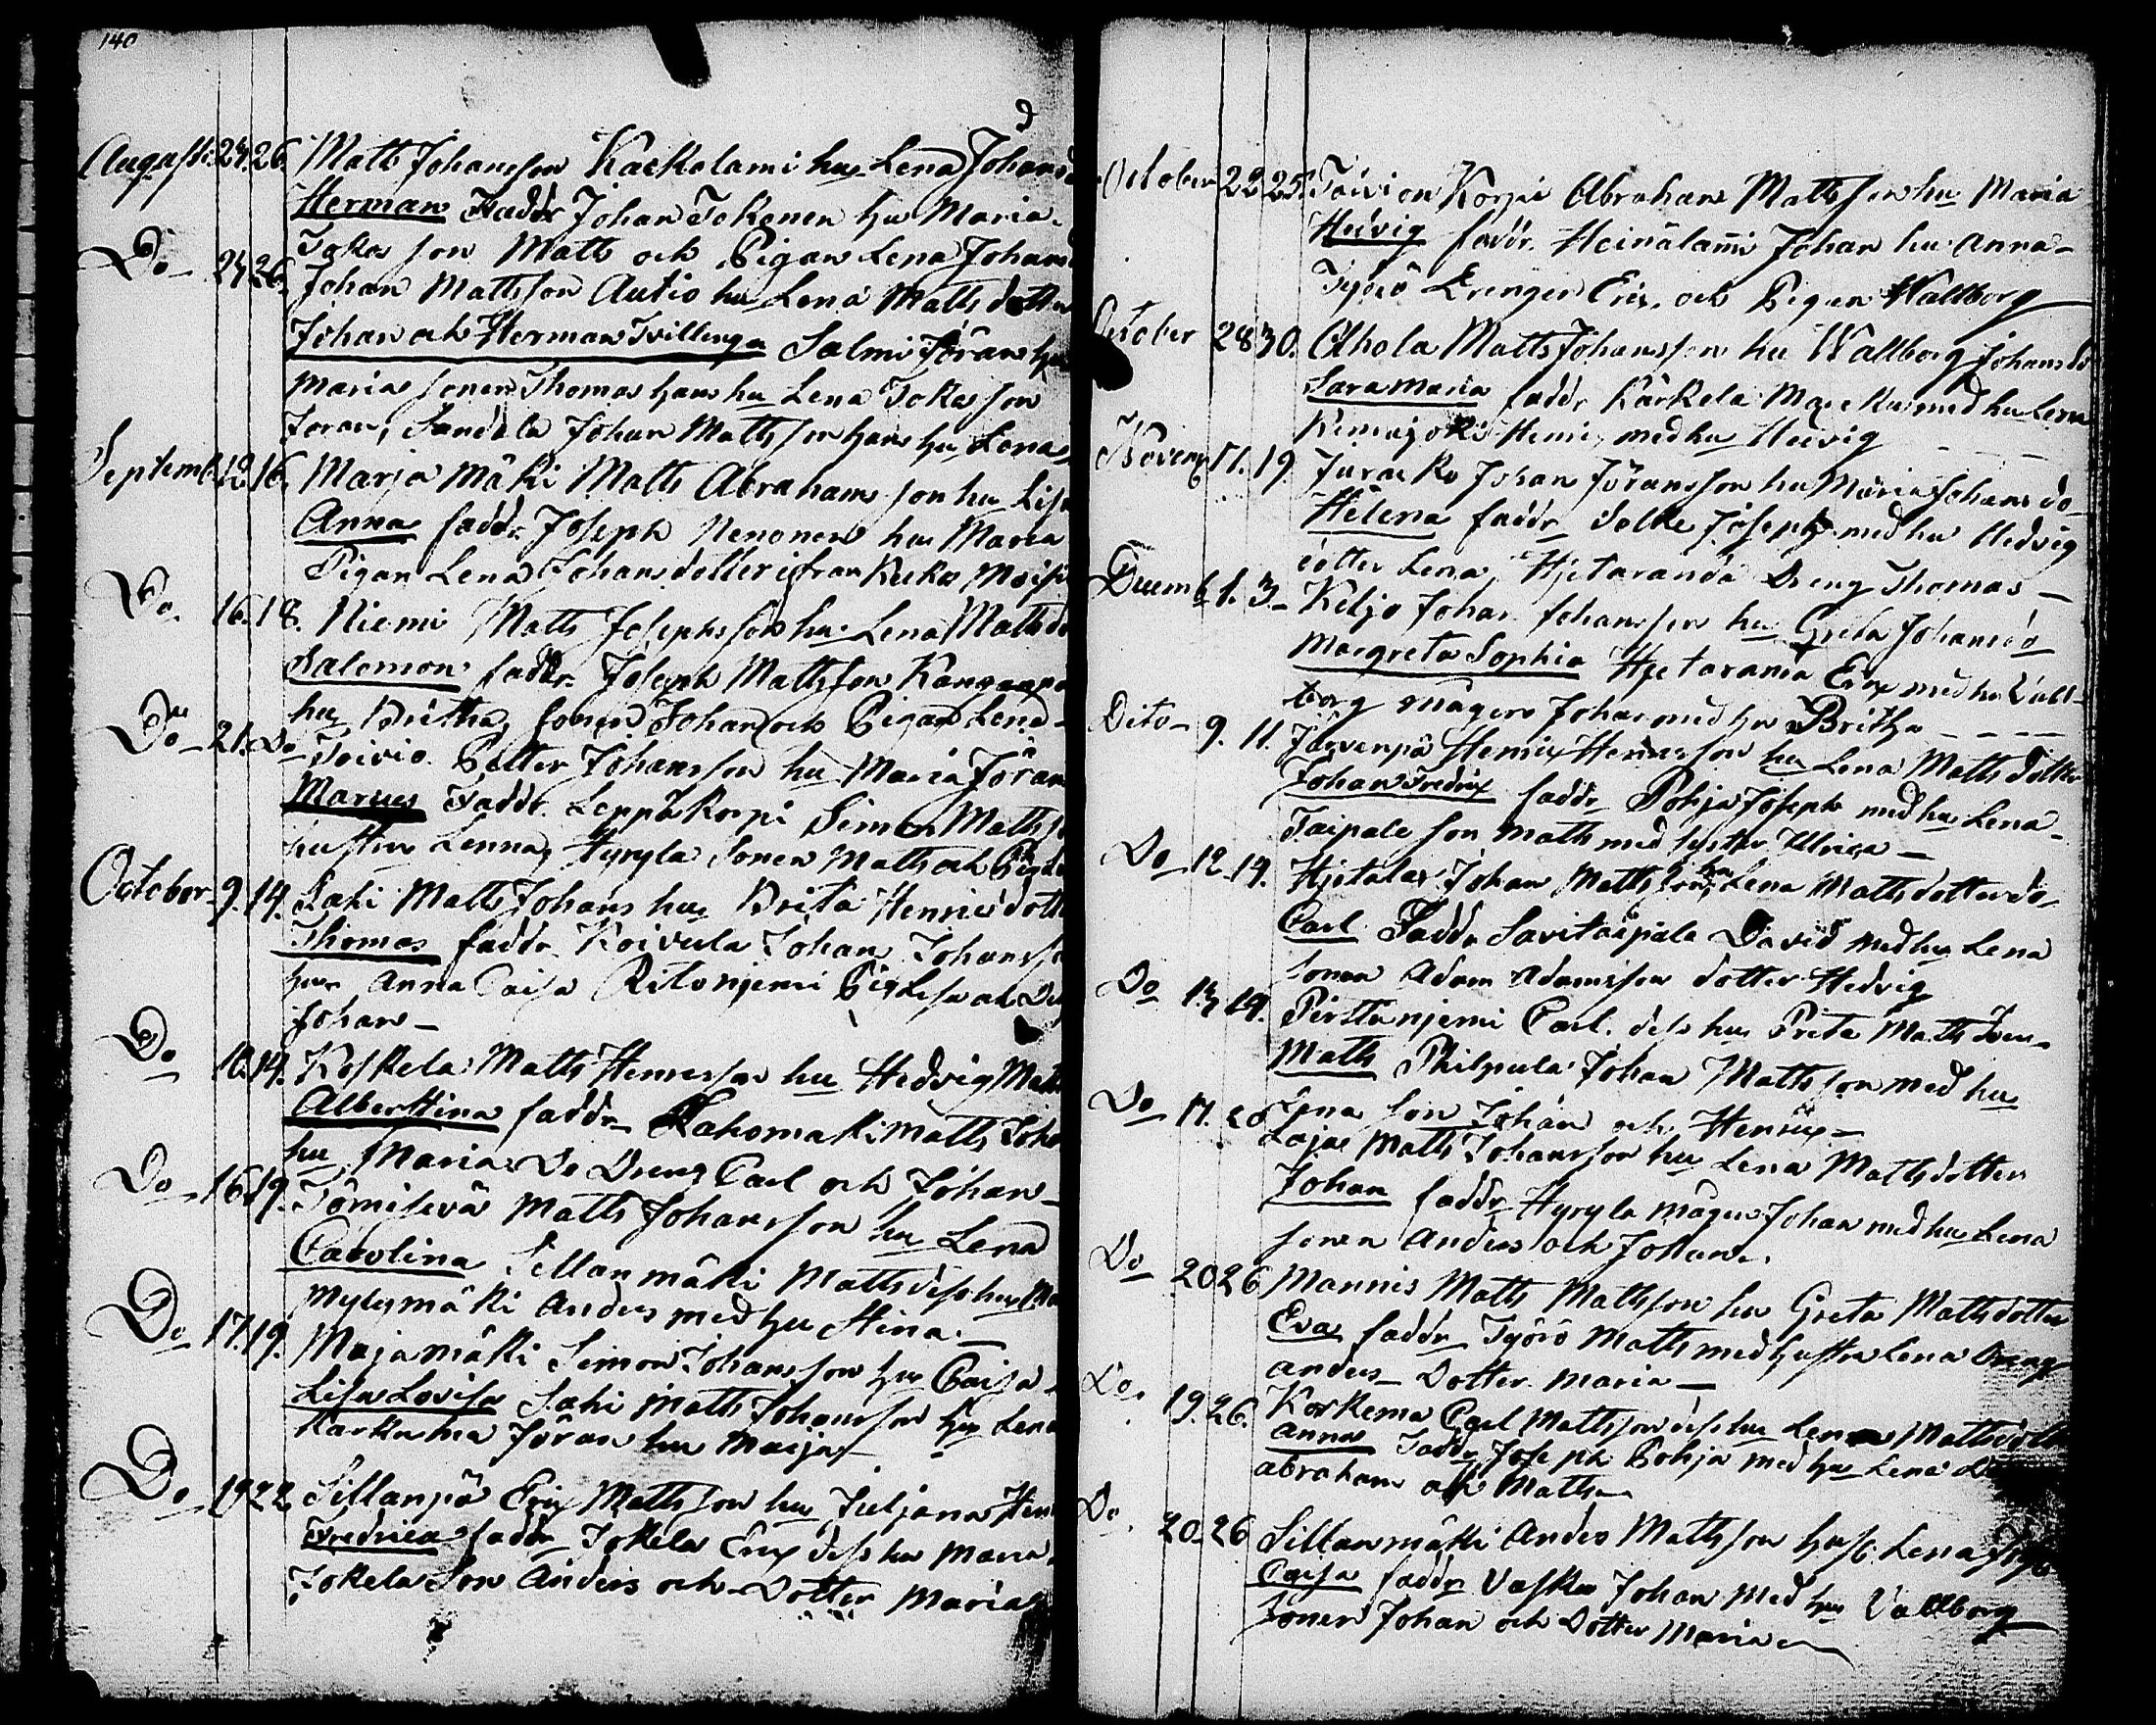 140
Augusti 24. 26. Matts Johansson Karkolami hu Lena Johans
Herman Faddr Johan Tokonen hu Maria
Tokas son Matts och Pigan Lena Johans
Do 24 26. Johan Mattsson Autio hu Lena Mattsdotter
Johan och Herman Tvillingar Salmi Jöran hu
Maria sonen Thomas hans hu Lena Tokas son
Joran, Sandala Johan Mattsson hans hu Lena
Septemb 12. 16. Marja Mäki Matts Abrahamsson hu Lisa
Anna faddr Joseph Nenonen hu Maria
Pigan Lena Johansdotter ifran
Do. 16. 18. Niemi Matts Josephsson hu Lena Matts do
Salomon faddr Joseph Mattsson
hu Britha, sonen Johan och Pigan Lena
Do 21. Do Toivio Petter Johansson hu Maria Jöran
Marcus Faddr Leppäkorpi Simon Matts
hustru Lenna, Hyryla sonen Matts och
October 9. 14. Saki Matts Johans hu Brita Henric dott
Thomas faddr Koivula Johan Johanss
hu Anna Caisa Ritoniemi Pig Lisa och
Johan
Do 10. 14. Koskela Matts Henrisson hu Hedvig Matts
Alberttina faddr Kahomaki Matts Joh
hu Maria Do Dreng Carl och Johan
Do 16 19. Tömisevä Matts Johansson hu Lena
Carolina Sillanmäki Matts dess hu
Mylymäki Anders med hu Stina
Do 17. 19. Majamäki Simon Johansson hu Caisa
Lisa Lovisa Saki Matts Johansson hu Lena
Karkuma Jöran hu Maija
Do 19 22 Sillanpä Eric Mattsson hu Juljana Hen
Fredrica faddr Jokela Eric dess hu Maria
Jokela Son Anders och Dotter Maria
October 22 25. Toivion Korpi Abraham Mattsson hu Maria
Hedvig faddr. Heinälami Johan hu Anna
Työrö Drengen Eric och Pigan Wallborg
October 28 30. Ahola Matts Johansson hu Wallborg Johansdo
Sara Maria faddr Kärkela Marckus med hu Lena
Kemijoki Henric med hu Hedvig
Novemb 17. 19. Juracko Johan Jöransson hu Maria Johans do
Helena faddr Joseph med hu Hedvig
dotter Lena, Hjetaranda Dreng Thomas
Decemb 1. 3. Keljo Johan Johansson hu Greta Johansdo
Margreta Sophia Hjetaranta Eric med hu Vall-
borg mågen Johan med hu Britha
Dito 9. 11. Järvenpä Henric Henrisson hu Lena Matts dotter
Johan Fredric faddr Pohja Joseph med hu Lena
Taipale son Matts med syster Ulrica
Do 12. 19. Hjetala Johan Mattsson hu Lena Mattsdotter do
Carl Faddr Savitaipale David med hu Lena
sonen Adam Adamsson dotter Hedvig
Do 14 19. Pirttiniemi Carl dess hu Prita Matts
Matts Philpula Johan Mattsson med hu
Lena son Johan och Henric
Do 17. 20 Lajas Matts Johansson hu Lena Mattsdotter
Johan faddr Hyryla mågen Johan med hu Lena
sonen Anders och Johan.
Do 20 26 Mannis Matts Mattsson hu Greta Mattsdotter
Eva faddr Työrö Matts med hustru Lena Dreng
Anders Dotter Maria
Do. 19. 26. Koskema Carl Mattsson dess hu Lena Mattsdott
Anna Faddr Joseph Pohja med hu Lena
Abraham och Matts
Do. 20. 26 Sillanmäki Anders Mattsson hust Lena
Caisa faddr Vaska Johan med hu Vallborg
sonen Johan och Dotter Maria